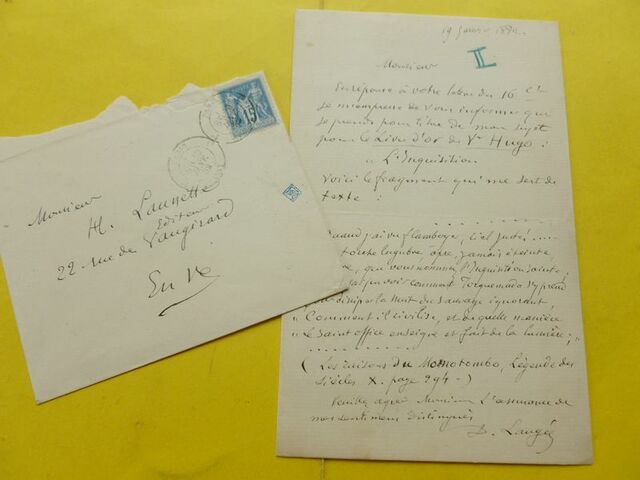 Monsieur
H. Launette
Editeur
22 rue de Vaugirard
En Ve
15
19 Janvier 1884.
II
Monsieur
En réponse à votre lettre du 16 Ct
je m'empresse de vous informer que
je prends pour titre de mon sujet
pour le Livre d'or de Vr Hugo :
" L'Inquisition
Voici le fragment qui me sert de
texte :
quand j'ai vu flamboyer, ciel juste! ....
torche lugubre, âpre, jamais éteinte,
que vous nommez l'Inquisition Sainte,
voir comment Torquemada s'y prend
dissiper la nuit du sauvage ignorant,
" Comment il civilise, et de quelle manière
" Le Saint office enseigne et fait de la lumière; "
( Les raisons du Momotombo, Légende des
Siècles X. page 294 - )
Veuillez agréer Monsieur l'assurance de
mes sentiments distingués
D. Laugée